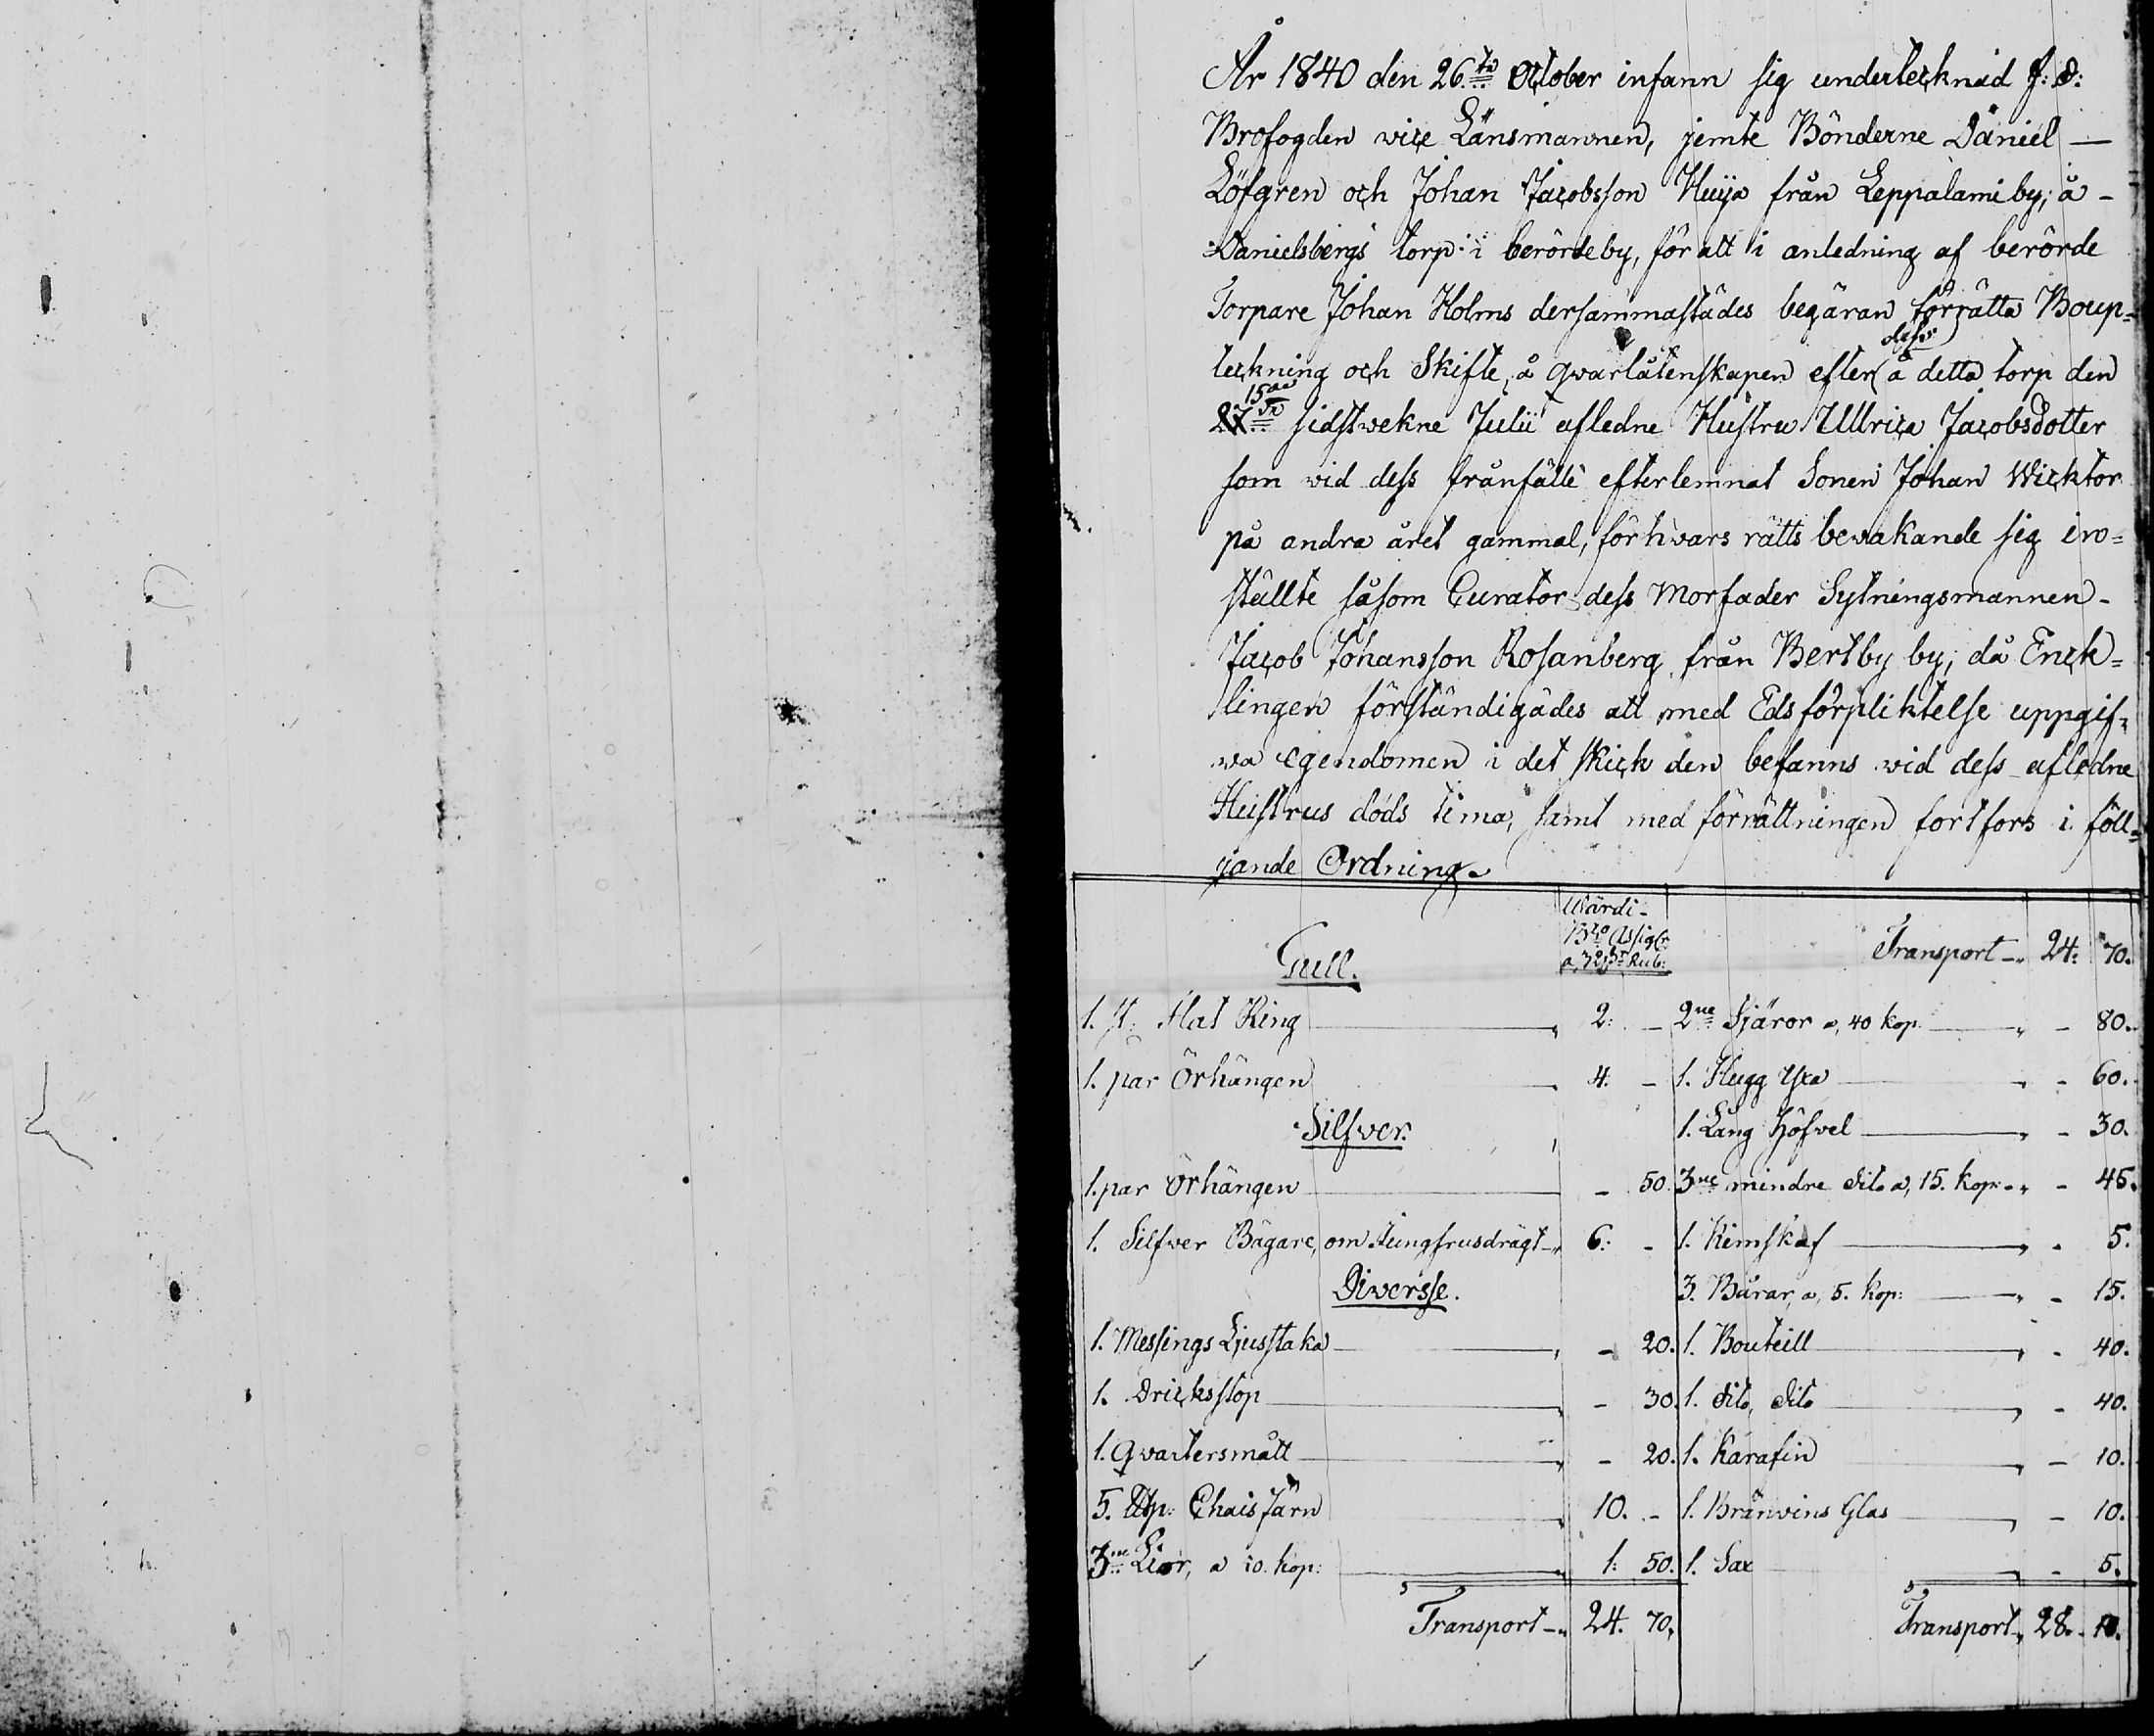 År 1840 den 26:te October infann sig undertecknad f: d:
Brofogden vice Länsmannen, jemte Bönderne Daniel —
Löfgren och Johan Jacobsson Huija från Leppälami by; å -
Danielsbergs torp i berörde by, för att i anledning af berörde
Torpare Johan Holms dersammastädes begäran förrättaBoup=
teckning och Skifte, å qwarlåtenskapen efter dess å detta torp den
15de sidstvekne Julii afledne Hustru Ullrica Jacobsdotter
som vid dess frånfälle efterlemnat Sonen Johan Wicktor
på andra året gammal, för hvars rätts bevakande sig in=
ställte såsom Curator dess Morfader Sytningsmannen -
Jacob Johansson Rosanberg från Bertby by; då Enck=
lingen förständigades att med Edsförpliktelse uppgif=
va egendomen i det skick den befanns vid dess afledne
Hustrus döds tima, samt med förrättningen fortfors i föll=
jande Ordning.
Wärdi-
Bco Assigr
a, 32 pr Rub:
Gull.
1. st: Slät Ring 2: -
1. par Örhängen 4. -
Silfver.
1. par Örhängen - 50.
1. Silfver Bägare, om Jungfrusdrägt 6: -
Diversse.
1. Messings Ljusstaka - 20.
1. Dricksstop - 30.
1. Qvartersmått - 20.
5. Lisp: Chais Järn 10. -
3ne Liar, a 50. kop: 1: 50.
Transport 24. 70.
Transport 24: 70.
2ne Sjäror a, 40 kop. - 80.
1. Hugg Yxa - 60.
1. Lång Höfvel - 30.
3ne mindre dito a, 15. kop: - 45.
1. Rimskaf - 5.
3. Bårar, a, 5. kop: - 15.
1. Bouteill - 40.
1. dito, dito - 40.
1. Karafin - 10.
1. Bränvins Glas - 10.
1. Sax - 5.
Transport 28. 10.